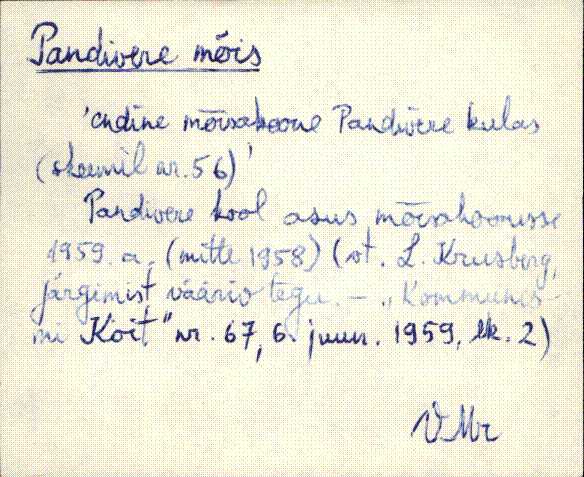 Pandivere mõis
'endine mõisahoone Pandivere külas
(skeemil nr. 56)'
Pandivere kool asus mõisahoonesse
1959. a. (mitte 1958) (vt. L. Krusberg,
Järgimist vääriv tegu. – „Kommunis-
mi Koit" nr. 67, 6. juun. 1959, lk. 2)
VMr